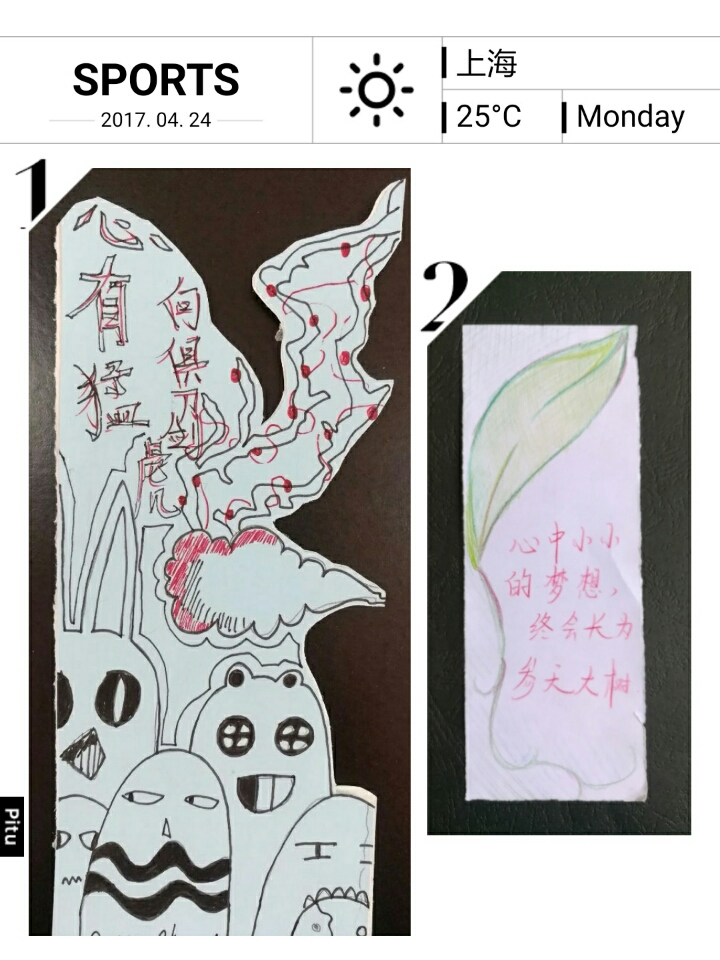 SPORTS
2017. 04. 24
上海
25°C
Monday
1
心有猛
何俱
虎
2
心中小小
的梦想，
终会长为
参天大树
Pitu